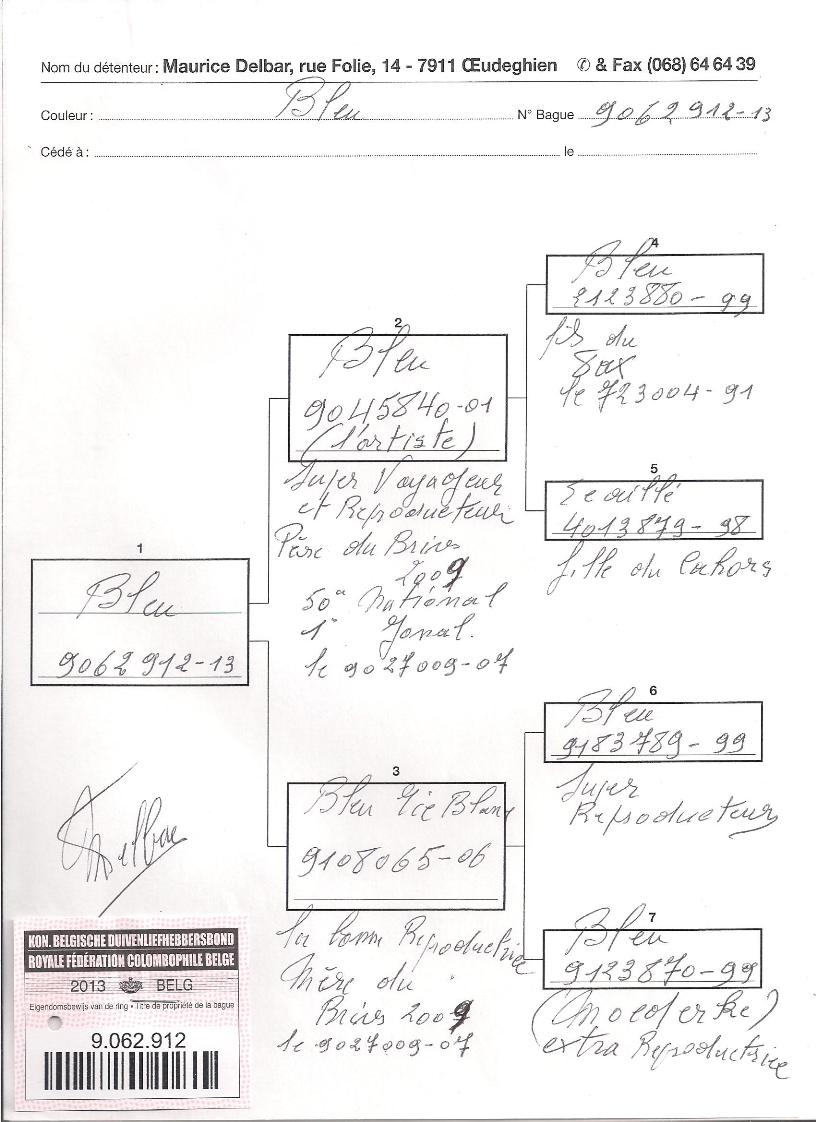 Nom du détenteur : Maurice Delbar, rue Folie, 14 - 7911 Œudeghien ✆ & Fax (068) 64 64 39
Couleur : Bleu N° Bague 9062912-13
Cédé à : le
4
Bleu
2123880-99
fils du
le 723004-91
2
Bleu
9045840-01
(l'artiste)
Super Voyageur
et Reproducteur
Père du Brives
2009
50e National
1e Zonal.
le 9027009-07
5
Ecaillé
4013879-98
fille du Cahors
1
Bleu
9062912-13
6
Bleu
9183789-99
Super
Reproducteur
3
Bleu Vice Blanc
9108065-06
la bonne Reproductrice
Mère du
Brives 2009
le 9027009-07
7
Bleu
9123870-99
(Moederke)
extra Reproductrice
MDelbar
KON. BELGISCHE DUIVENLIEFHEBBERSBOND
ROYALE FÉDÉRATION COLOMBOPHILE BELGE
2013 BELG
Eigendomsbewijs van de ring • Titre de propriété de la bague
9.062.912